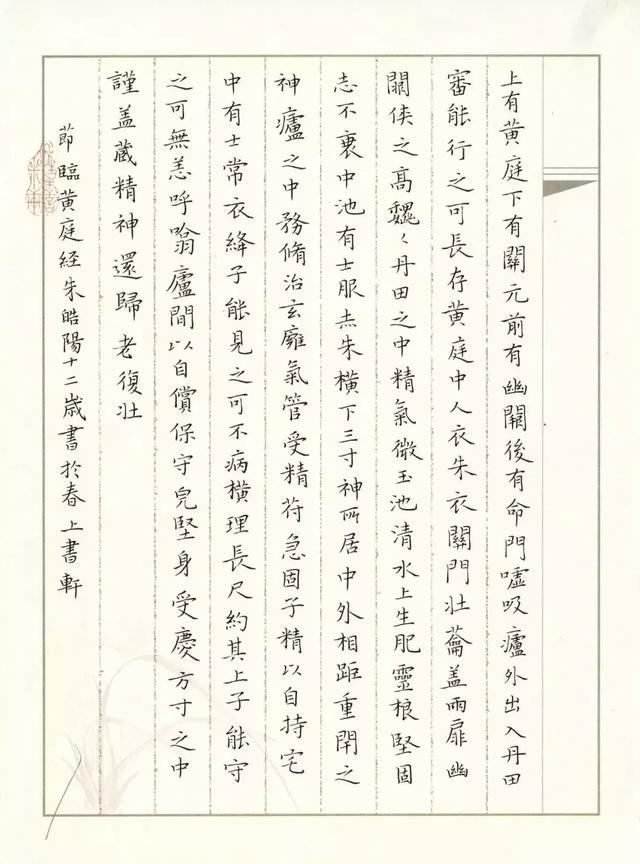 上有黄庭下有關元前有幽闕後有命門噓吸廬外出入丹田
審能行之可長存黄庭中人衣朱衣關門壯蘥盖兩扉幽
闕侠之髙巍〻丹田之中精氣微玉池清水上生肥靈根堅固
志不衰中池有士服赤朱横下三寸神所居中外相距重閇之
神廬之中務脩治玄癰氣管受精苻急固子精以自持宅
中有士常衣絳子能見之可不病横理長尺約其上子能守
之可無恙呼噏廬間以自償保守皃堅身受慶方寸之中
謹盖蔵精神還歸老復壮
節臨黄庭经朱皓陽十二歲書於春上書軒